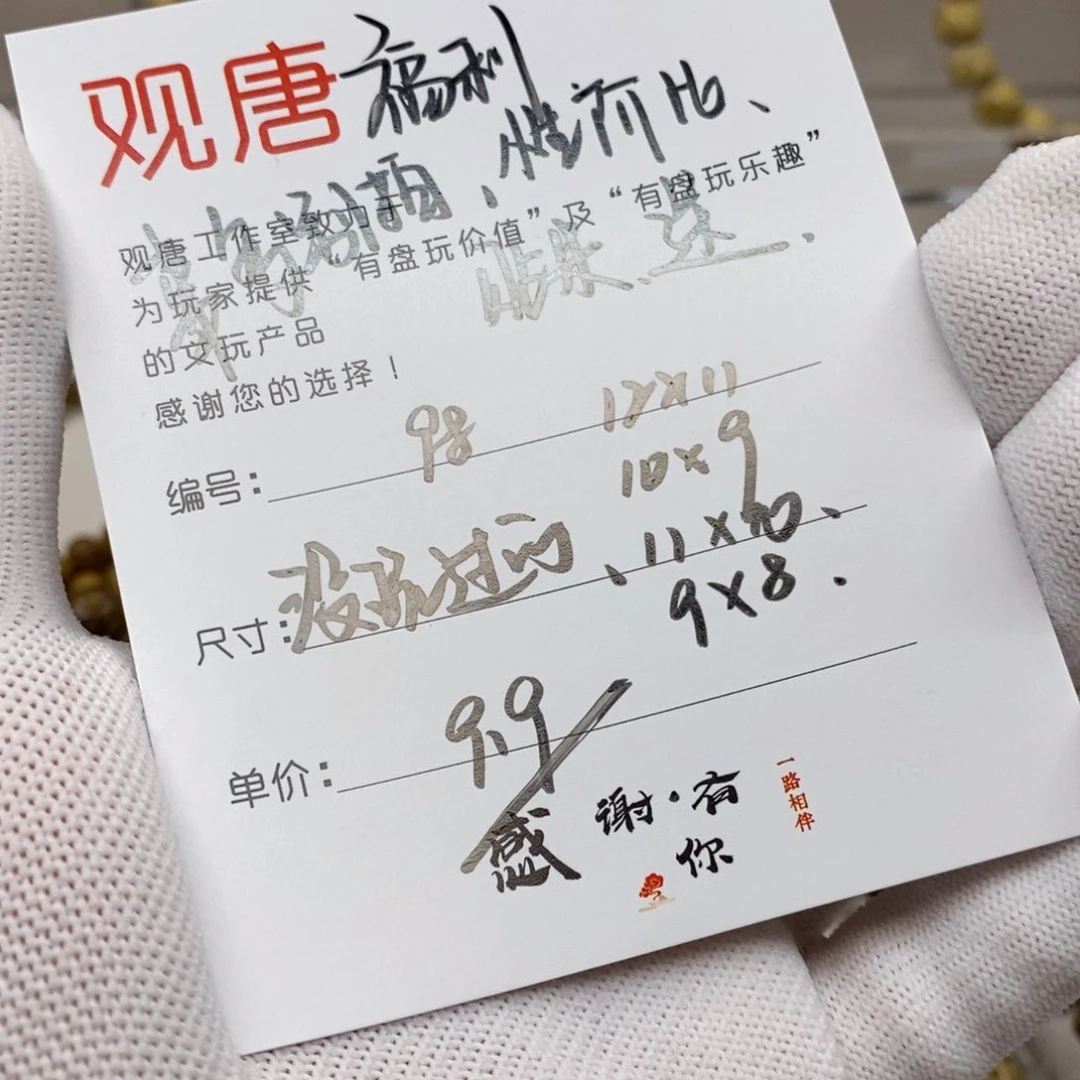 观唐 福利
、性价比、
观唐工作室致力于
为玩家提供“有盘玩价值”及“有盘玩乐趣”
的文玩产品
感谢您的选择！
编号： 98 12×11
10×9
尺寸： 没玩过的、11×10、
9×8.
单价： 9.9
感谢·有你
一路相伴